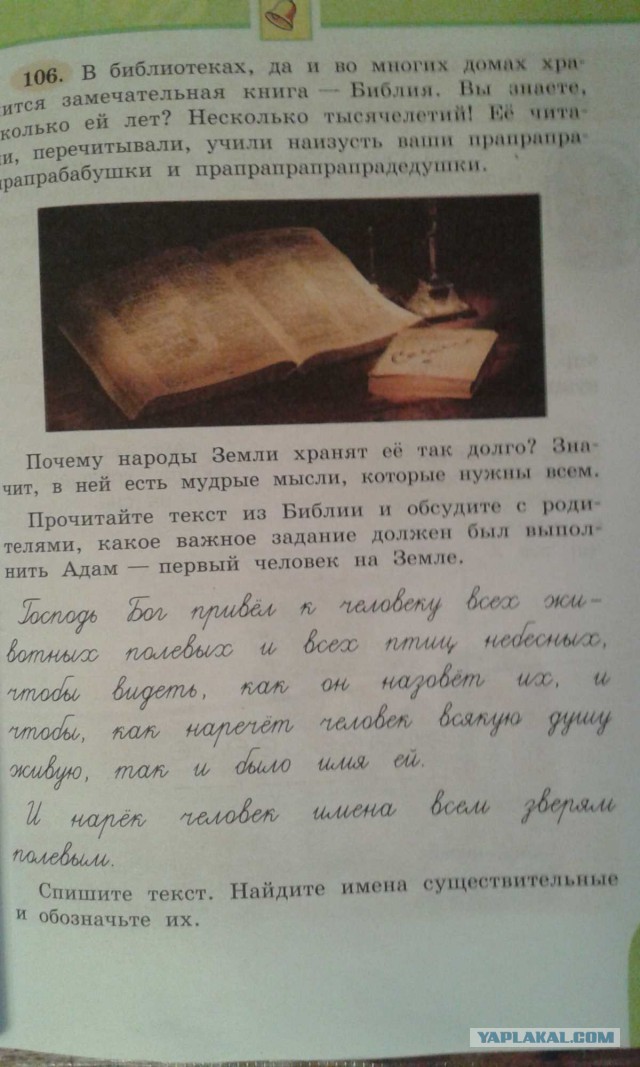 106. В библиотеках, да и во многих домах хра-
нится замечательная книга — Библия. Вы знаете,
сколько ей лет? Несколько тысячелетий! Её чита-
ли, перечитывали, учили наизусть ваши прапрапра-
прапрабабушки и прапрапрапрапрадедушки.
Почему народы Земли хранят её так долго? Зна-
чит, в ней есть мудрые мысли, которые нужны всем.
Прочитайте текст из Библии и обсудите с роди-
телями, какое важное задание должен был выпол-
нить Адам — первый человек на Земле.
Господь Бог привёл к человеку всех жи-
вотных полевых и всех птиц небесных,
чтобы видеть, как он назовёт их, и
чтобы, как наречёт человек всякую душу
живую, так и было имя ей.
И нарёк человек имена всем зверям
полевым.
Спишите текст. Найдите имена существительные
и обозначьте их.
YAPLAKAL.COM